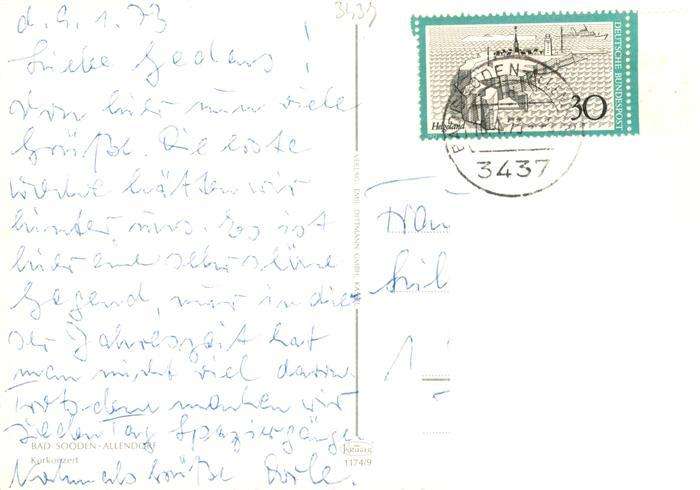 d. 9. 1. 73
3437
Liebe Gedaus!
Von hier nun viele
Grüße. Die erste
Woche hätten wir
hinter uns. Es ist
hier eine sehr schöne
Gegend, nur in die-
ser Jahreszeit hat
man nicht viel davon
trotzdem machen wir
jeden Tag Spaziergänge.
Nochmals Grüße
BAD SOODEN-ALLENDORF
Kurkonzert
VERLAG EMIL DITTMANN GMBH, KA
KRÜGER
1174/9
DEUTSCHE BUNDESPOST
Helgoland
30
BAD SOODEN
3437
1